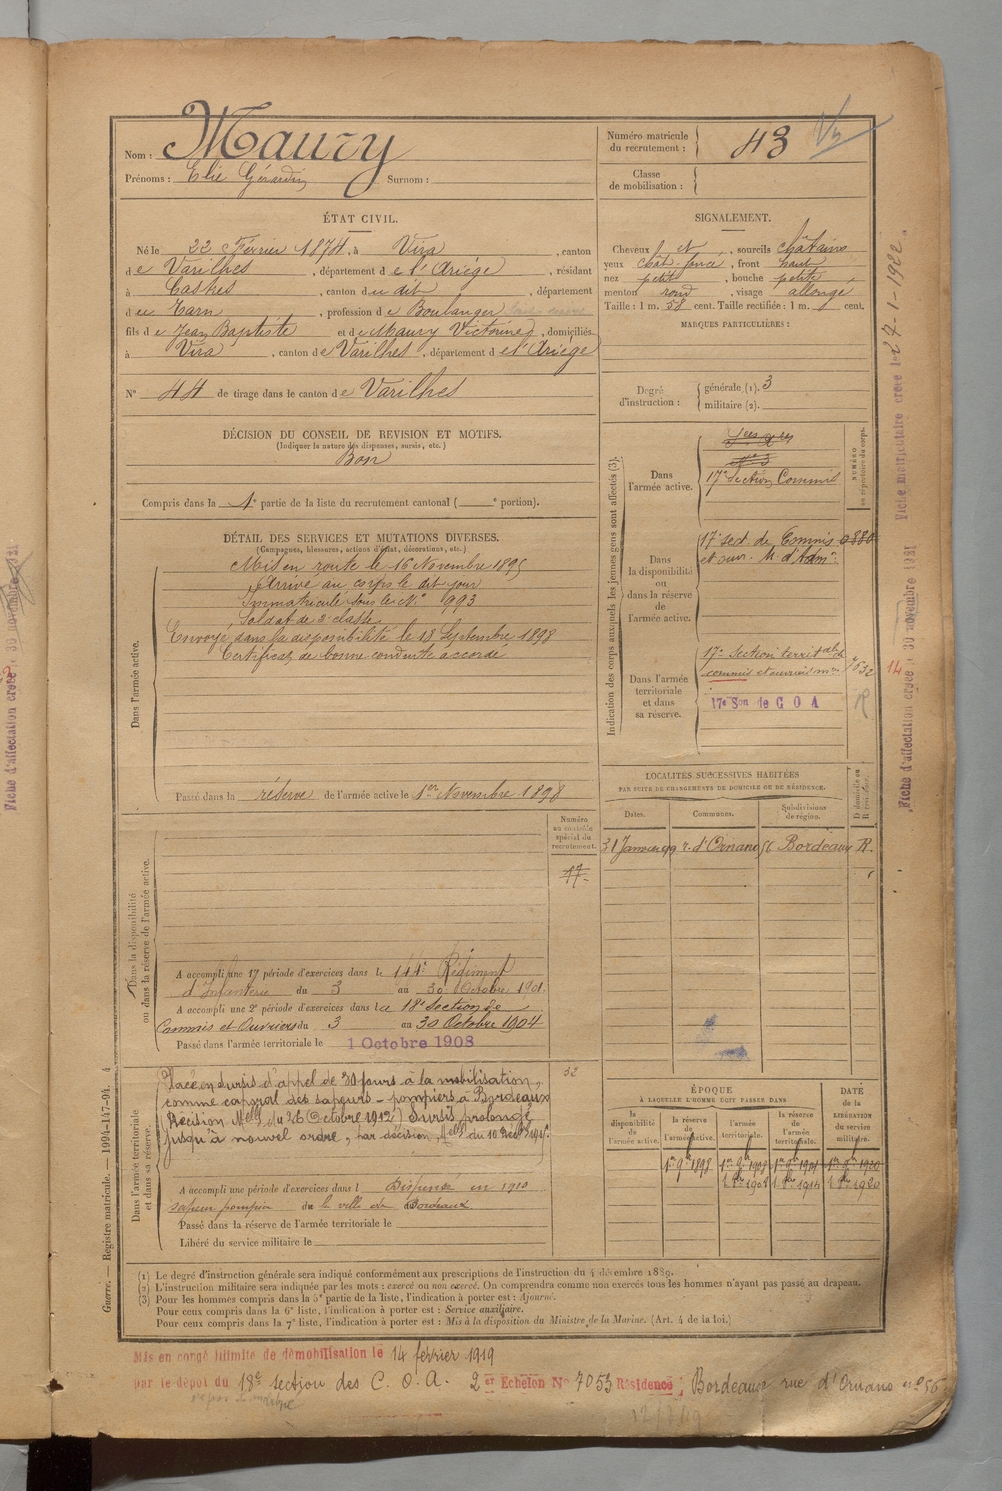 Nom : Maury
Prénoms : Elie Gérardin Surnom :
Numéro matricule du recrutement : 43
Classe de mobilisation :
ÉTAT CIVIL.
Né le 22 Février 1874, à Vira, canton
de Varilhes, département de l'Ariège, résidant
à Castres, canton du dit, département
du Tarn, profession de Boulanger
fils de Jean Baptiste et de Maury Victorine, domiciliés
à Vira, canton de Varilhes, département de l'Ariège
N° 44 de tirage dans le canton de Varilhes
DÉCISION DU CONSEIL DE REVISION ET MOTIFS.
(Indiquer la nature des dispenses, sursis, etc.)
Bon
Compris dans la 1e partie de la liste du recrutement cantonal ( e portion).
SIGNALEMENT.
Cheveux et, sourcils châtains
yeux chât. foncé, front haut
nez petit, bouche petite
menton rond, visage allongé
Taille : 1 m. 58 cent. Taille rectifiée : 1 m. cent.
MARQUES PARTICULIÈRES :
Degré d'instruction : générale (1). 3
militaire (2).
DÉTAIL DES SERVICES ET MUTATIONS DIVERSES.
(Campagnes, blessures, actions d'éclat, décorations, etc.)
Dans l'armée active.
Mis en route le 16 Novembre 1895
Arrivé au corps le dit jour
Immatriculé sous le N° 993
Soldat de 2e classe
Envoyé dans la disponibilité le 13 Septembre 1898
Certificat de bonne conduite accordé
Passé dans la réserve de l'armée active le 1er Novembre 1898
Indication des corps auxquels les jeunes gens sont affectés (3).
NUMÉRO au répertoire du corps.
Dans l'armée active.
17e Section Commis
Dans la disponibilité ou dans la réserve de l'armée active.
17e sect. de Commis 0880
et ouv. M. d'Adm.
Dans l'armée territoriale et dans sa réserve.
17e Section territ.ale de
commis et ouvriers 7632
17e Son de C O A
R
LOCALITÉS SUCCESSIVES HABITÉES
PAR SUITE DE CHANGEMENTS DE DOMICILE OU DE RÉSIDENCE.
Dates. Communes. Subdivisions de région. D domicile ou R résidence.
31 Janvier 99 r. d'Ornano 56 Bordeaux R.
Dans la disponibilité ou dans la réserve de l'armée active.
Numéro au contrôle spécial du recrutement.
17
A accompli une 1re période d'exercices dans le 144e Régiment
d'Infanterie du 3 au 30 Octobre 1901.
A accompli une 2e période d'exercices dans la 18e Section de
Commis et Ouvriers du 3 au 30 Octobre 1904
Passé dans l'armée territoriale le 1 Octobre 1908
Dans l'armée territoriale et dans sa réserve.
32
Placé en sursis d'appel de 30 jours à la mobilisation,
comme caporal des sapeurs-pompiers à Bordeaux
(Décision Mlle du 26 Octobre 1912) Sursis prolongé
jusqu'à nouvel ordre, par décision Mlle du 10 Décbre 1915.
A accompli une période d'exercices dans l Dispensé en 1910
sapeur pompier du la ville de Bordeaux
Passé dans la réserve de l'armée territoriale le
Libéré du service militaire le
ÉPOQUE
À LAQUELLE L'HOMME DOIT PASSER DANS
DATE de la LIBÉRATION du service militaire.
la disponibilité de l'armée active. la réserve de l'armée active. l'armée territoriale. la réserve de l'armée territoriale.
1er 9bre 1898 1er 9bre 1908 1er 9bre 1914 1er 9bre 1920
1 8bre 1908 1 8bre 1914 1 8bre 1920
(1) Le degré d'instruction générale sera indiqué conformément aux prescriptions de l'instruction du 4 décembre 1889.
(2) L'instruction militaire sera indiquée par les mots : exercé ou non exercé. On comprendra comme non exercés tous les hommes n'ayant pas passé au drapeau.
(3) Pour les hommes compris dans la 5e partie de la liste, l'indication à porter est : Ajourné.
Pour ceux compris dans la 6e liste, l'indication à porter est : Service auxiliaire.
Pour ceux compris dans la 7e liste, l'indication à porter est : Mis à la disposition du Ministre de la Marine. (Art. 4 de la loi.)
Mis en congé illimité de démobilisation le 14 février 1919
par le dépôt du 18e section des C. O. A. 2e Echelon N° 7053 Résidence : Bordeaux rue d'Ornano n° 56
Guerre. — Registre matricule. — 1994-147-94. 4
Fiche matriculaire créée le 27-1-1922.
14 Fiche d'affectation créée le 30 novembre 1921
Fiche d'affectation créée le 30 novembre 1921